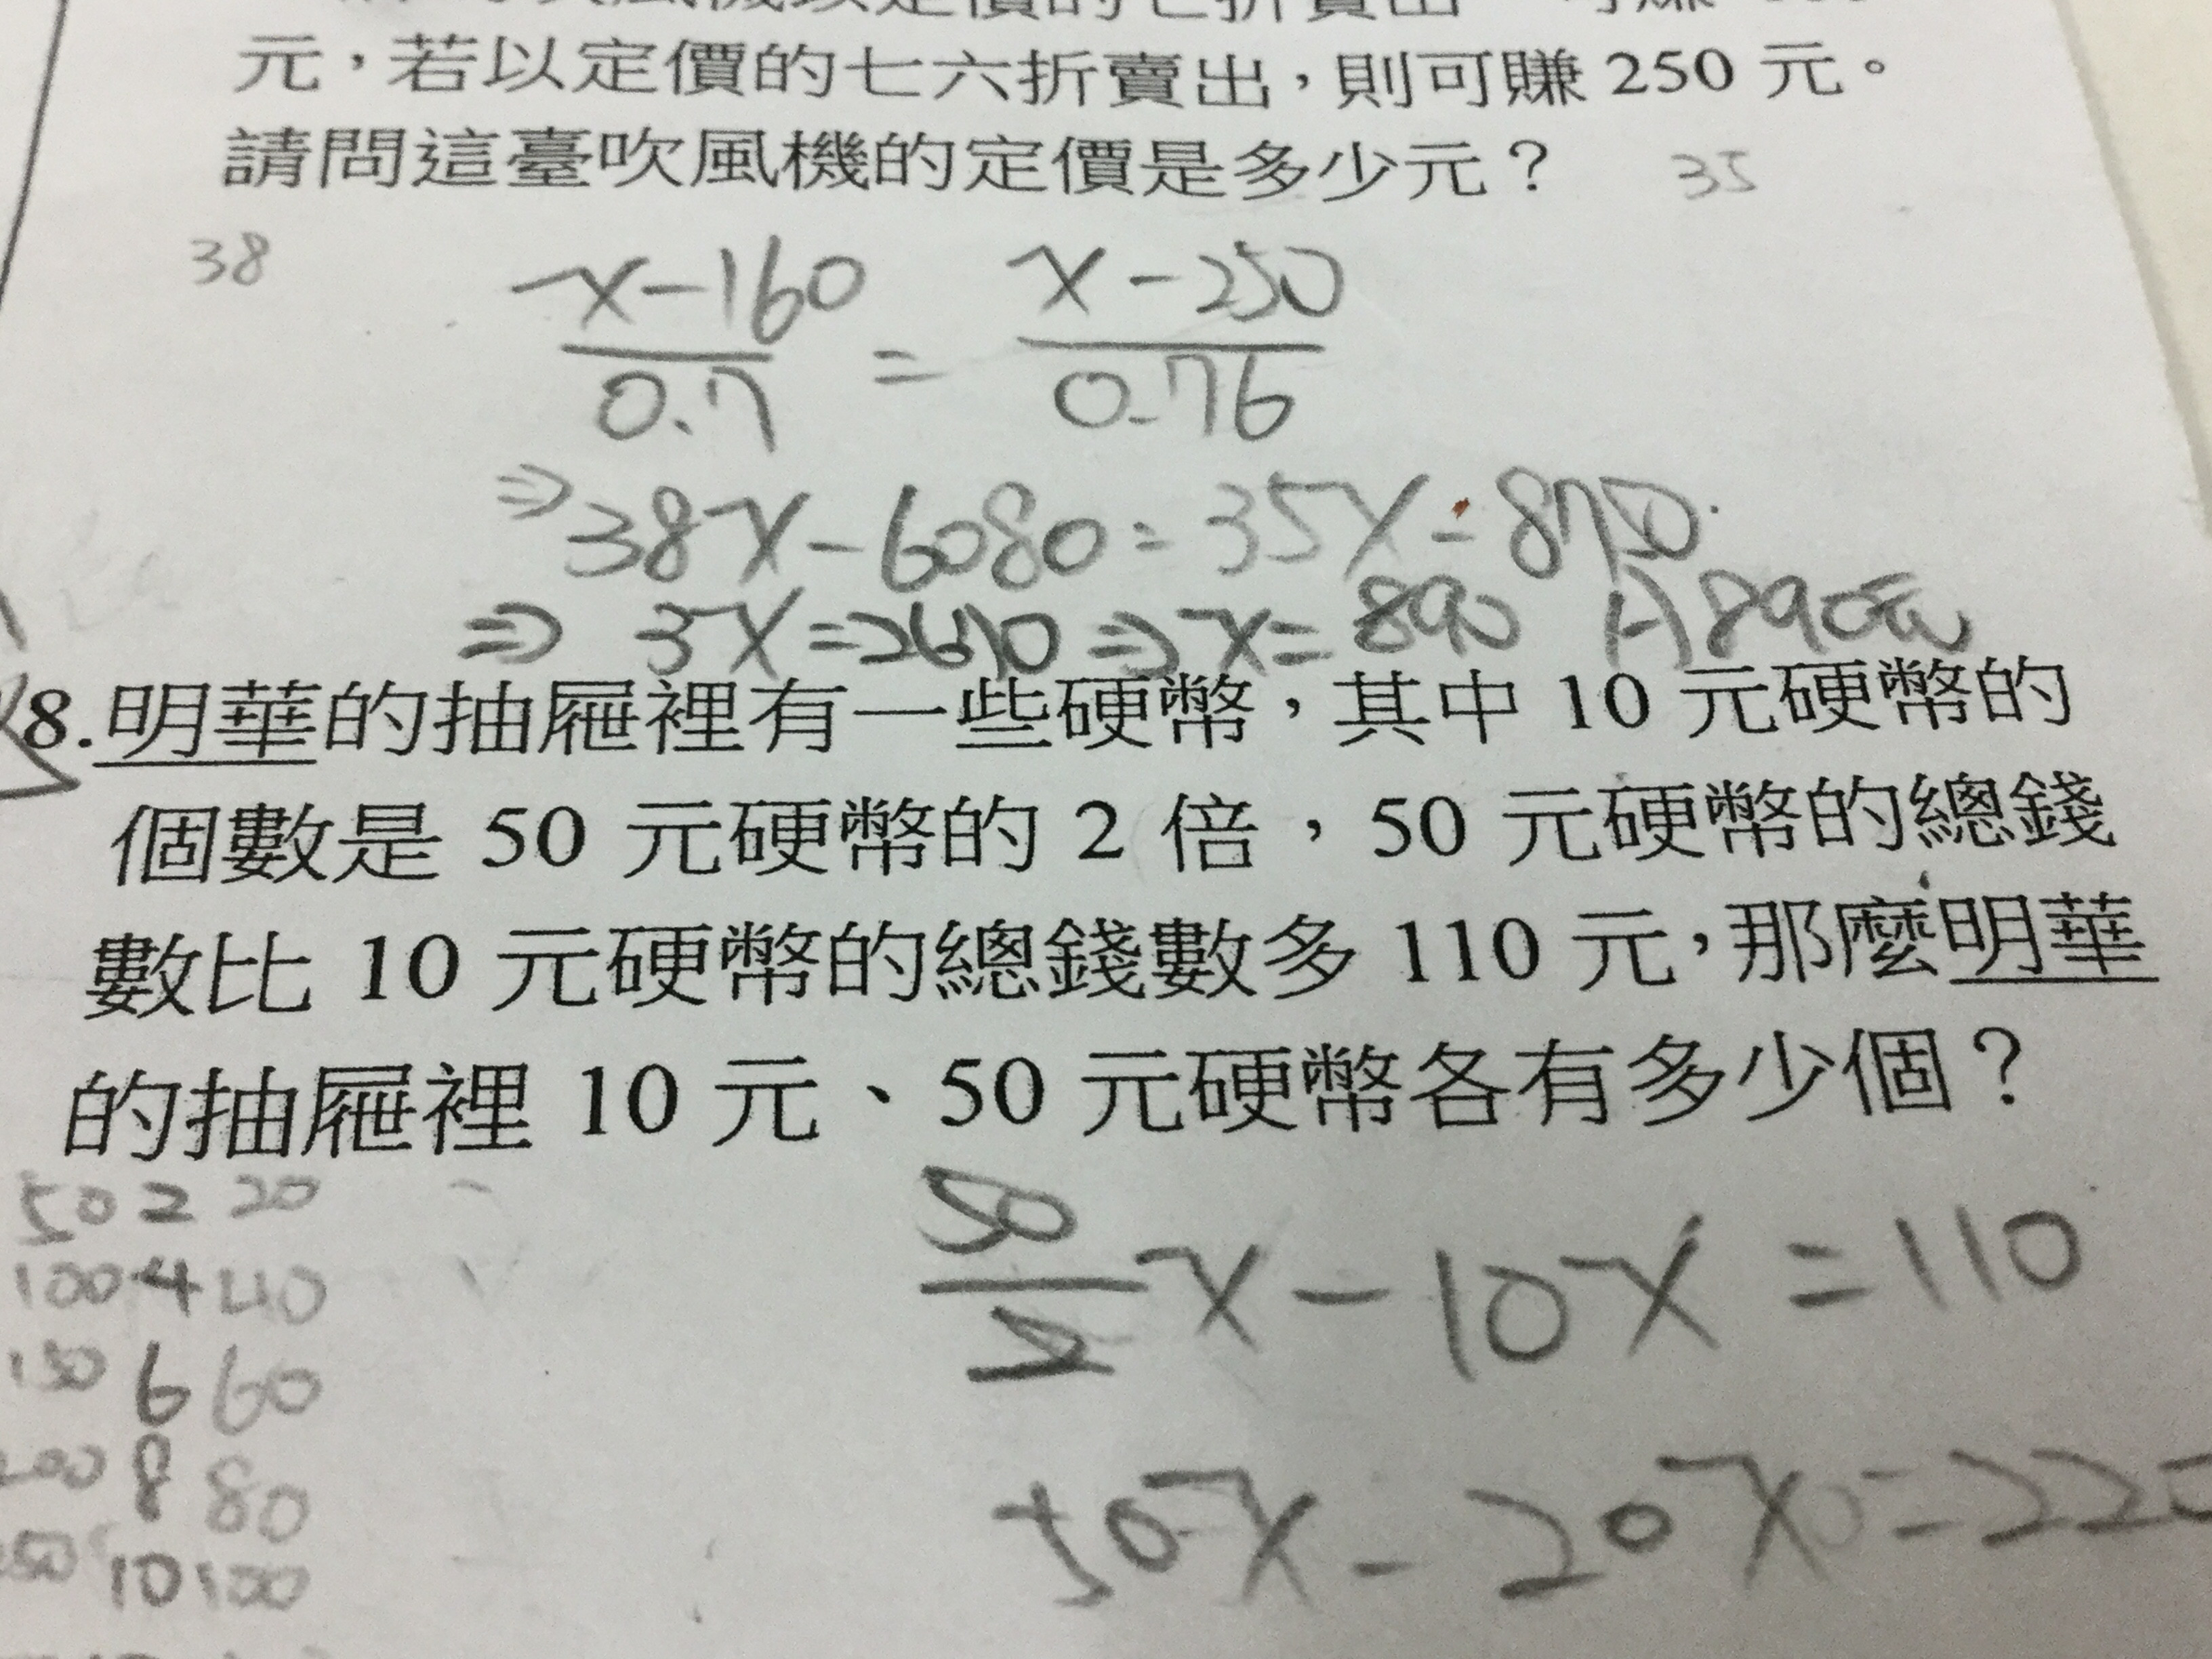 吹風機以定價的七折賣出
元，若以定價的七六折賣出，則可賺 250 元。
請問這臺吹風機的定價是多少元？ 35
38
x-160/0.7 = x-250/0.76
⇒38x-6080=35x-8750
⇒ 3x=2670 ⇒ x=890 A)890元
8.明華的抽屜裡有一些硬幣，其中 10 元硬幣的
個數是 50 元硬幣的 2 倍，50 元硬幣的總錢
數比 10 元硬幣的總錢數多 110 元，那麼明華
的抽屜裡 10 元、50 元硬幣各有多少個？
50 2 20
100 4 40
150 6 60
200 8 80
250 10 100
50/2 x-10x=110
50x-20x=220